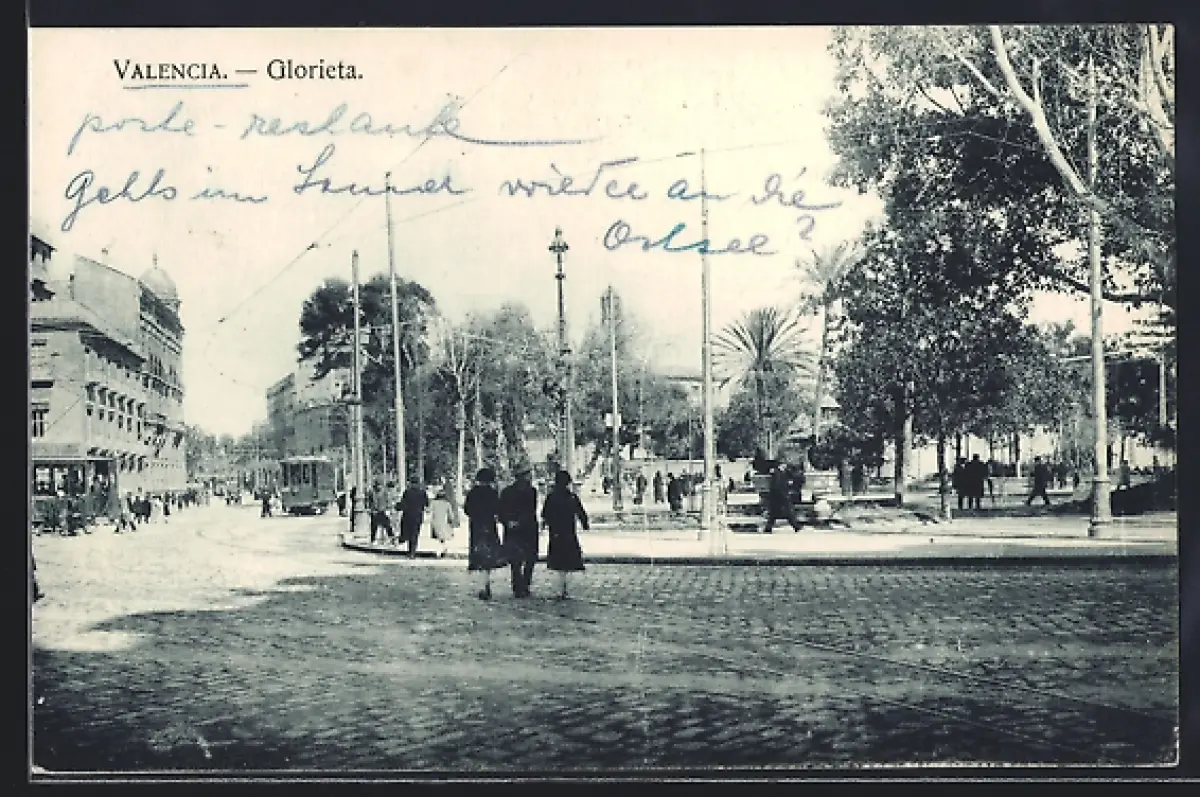 VALENCIA. — Glorieta.
poste-restante
Gehts im Sommer wieder an die
Ostsee?